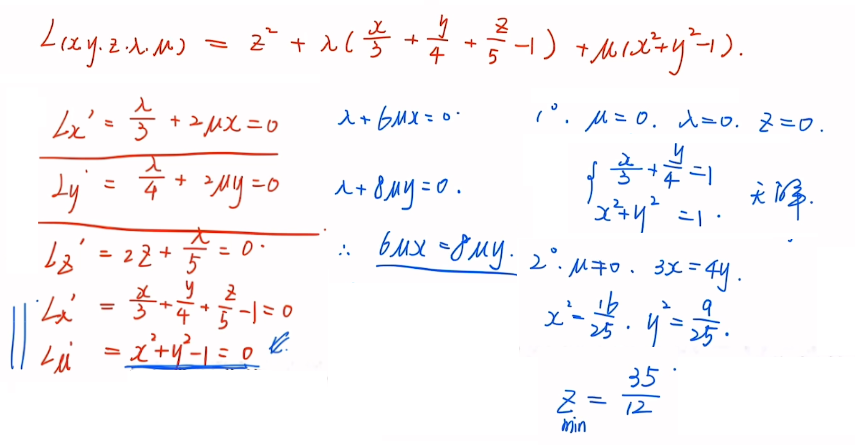 L(x.y.z.λ.μ) = z² + λ(x/3 + y/4 + z/5 - 1) + μ(x²+y²-1).
Lx' = λ/3 + 2μx = 0
Ly' = λ/4 + 2μy = 0
Lz' = 2z + λ/5 = 0.
Lλ' = x/3 + y/4 + z/5 - 1 = 0
Lμ' = x²+y²-1 = 0
λ + 6μx = 0.
λ + 8μy = 0.
∴ 6μx = 8μy.
1°. μ = 0. λ = 0. z = 0.
{ x/3 + y/4 = 1
x²+y² = 1. 无解.
2°. μ≠0. 3x = 4y.
x² = 16/25. y² = 9/25.
z min = 35/12